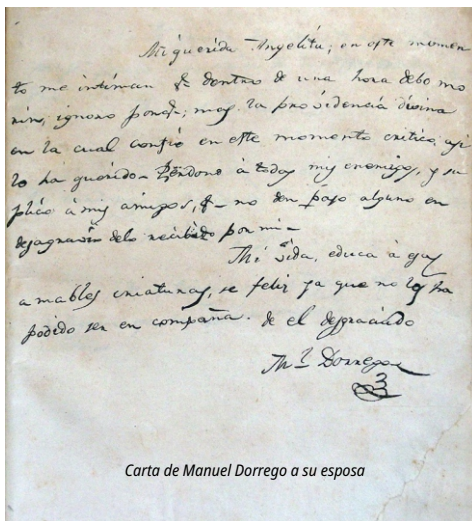 Mi querida Angelita; en este momen
to me intiman q.e dentro de una hora debo mo
rir; ignoro porq.e; mas la providencia divina
en la cual confio en este momento critico, asi
lo ha querido. Perdono à todos mis enemigos, y su
plico à mis amigos, q.e no den paso alguno en
desagravio de lo recibido por mi.
Mi vida, educa à esas
amables criaturas, se feliz ya que no lo has
podido ser en compañia. de el desgraciado
M.l Dorrego
Carta de Manuel Dorrego a su esposa